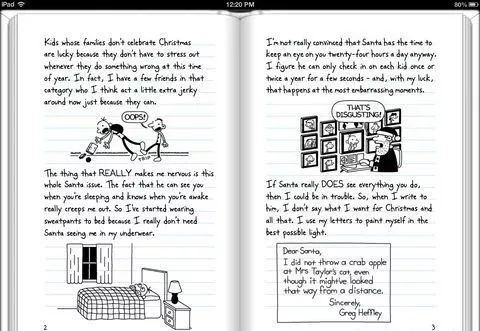 iPad
12:20 PM
80%
Kids whose families don't celebrate Christmas
are lucky because they don't have to stress out
whenever they do something wrong at this time
of year. In fact, I have a few friends in that
category who I think act a little extra jerky
around now just because they can.
OOPS!
TRIP
The thing that REALLY makes me nervous is this
whole Santa issue. The fact that he can see you
when you're sleeping and knows when you're awake
really creeps me out. So I've started wearing
sweatpants to bed because I really don't need
Santa seeing me in my underwear.
2
I'm not really convinced that Santa has the time to
keep an eye on you twenty-four hours a day anyway.
I figure he can only check in on each kid once or
twice a year for a few seconds - and, with my luck,
that happens at the most embarrassing moments.
THAT'S
DISGUSTING!
If Santa really DOES see everything you do,
then I could be in trouble. So, when I write to
him, I don't say what I want for Christmas and
all that. I use my letters to paint myself in the
best possible light.
Dear Santa,
I did not throw a crab apple
at Mrs Taylor's cat, even
though it might've looked
that way from a distance.
Sincerely,
Greg Heffley
3